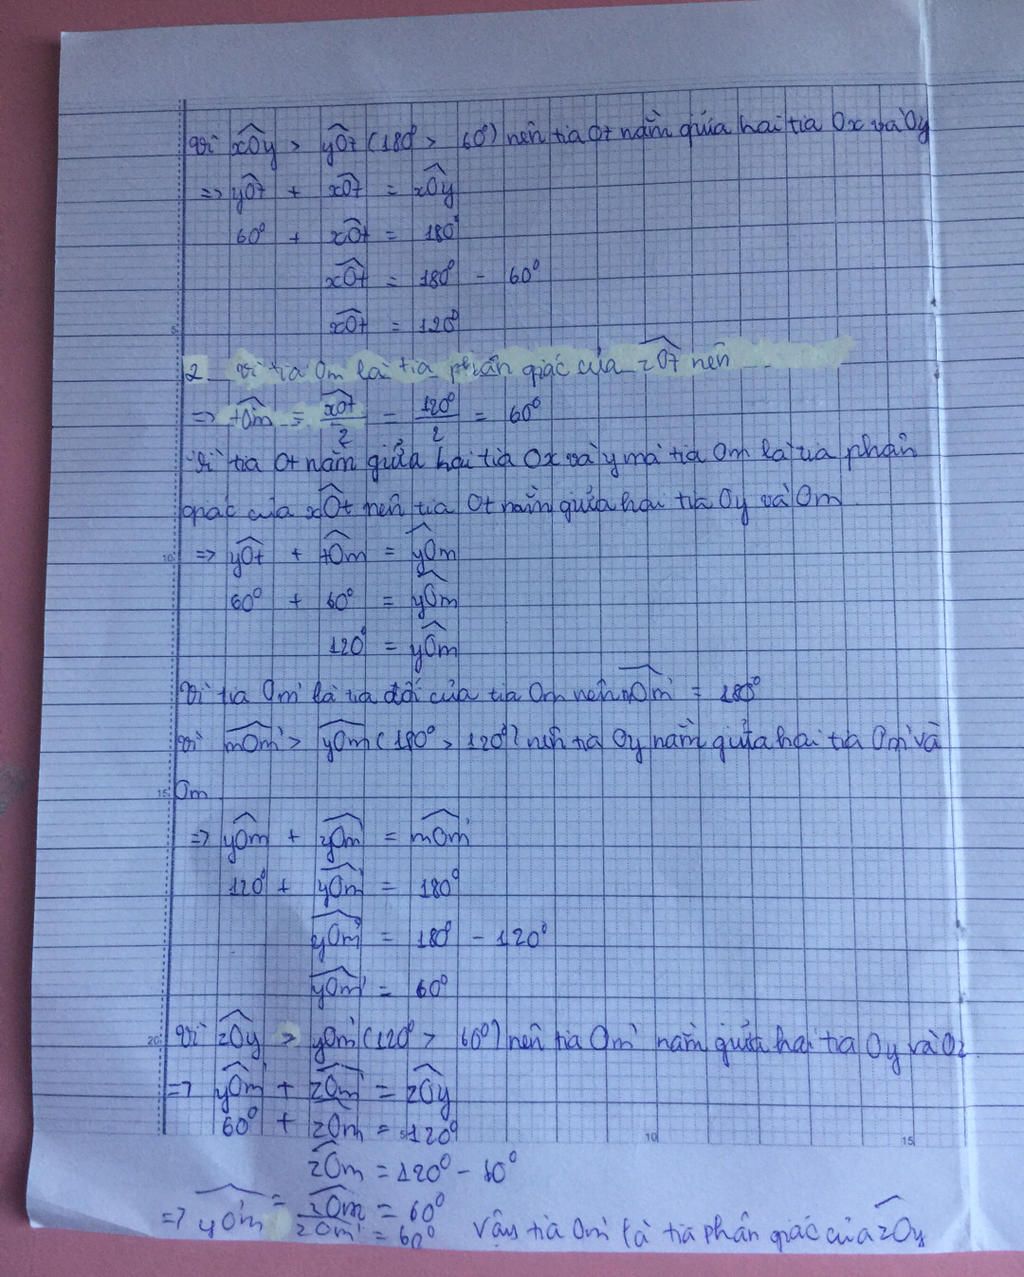 Vì xÔy > yÔt (180° > 60°) nên tia Ot nằm giữa hai tia Ox và Oy
=> yÔt + xÔt = xÔy
60° + xÔt = 180°
xÔt = 180° - 60°
xÔt = 120°
2. Vì tia Om là tia phân giác của zÔt nên
=> tÔm = xÔt/2 = 120°/2 = 60°
Vì tia Ot nằm giữa hai tia Ox và y mà tia Om là tia phân
giác của xÔt nên tia Ot nằm giữa hai tia Oy và Om
=> yÔt + tÔm = yÔm
60° + 60° = yÔm
120° = yÔm
Vì tia Om' là tia đối của tia Om nên mÔm' = 180°
Vì mÔm' > yÔm (180° > 120°) nên tia Oy nằm giữa hai tia Om' và
Om
=> yÔm + yÔm' = mÔm'
120° + yÔm' = 180°
yÔm' = 180° - 120°
yÔm' = 60°
Vì zÔy > yOm' (120° > 60°) nên tia Om' nằm giữa hai tia Oy và Oz
=> yÔm' + zÔm' = zÔy
60° + zÔm = 120°
zÔm = 120° - 60°
zÔm = 60°
=> yÔm' = zÔm' = 60° Vậy tia Om' là tia phân giác của zÔy
5
10
15
20
5
10
15